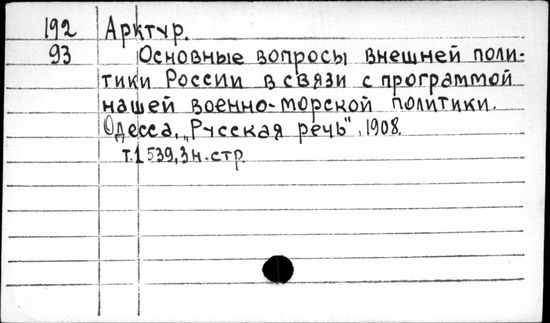 192 Арктур.
93 Основные вопросы внешней поли-
тики России в связи с программой
нашей военно-морской политики.
Одесса, „Русская речь", 1908.
т.1 539,3 н. стр.